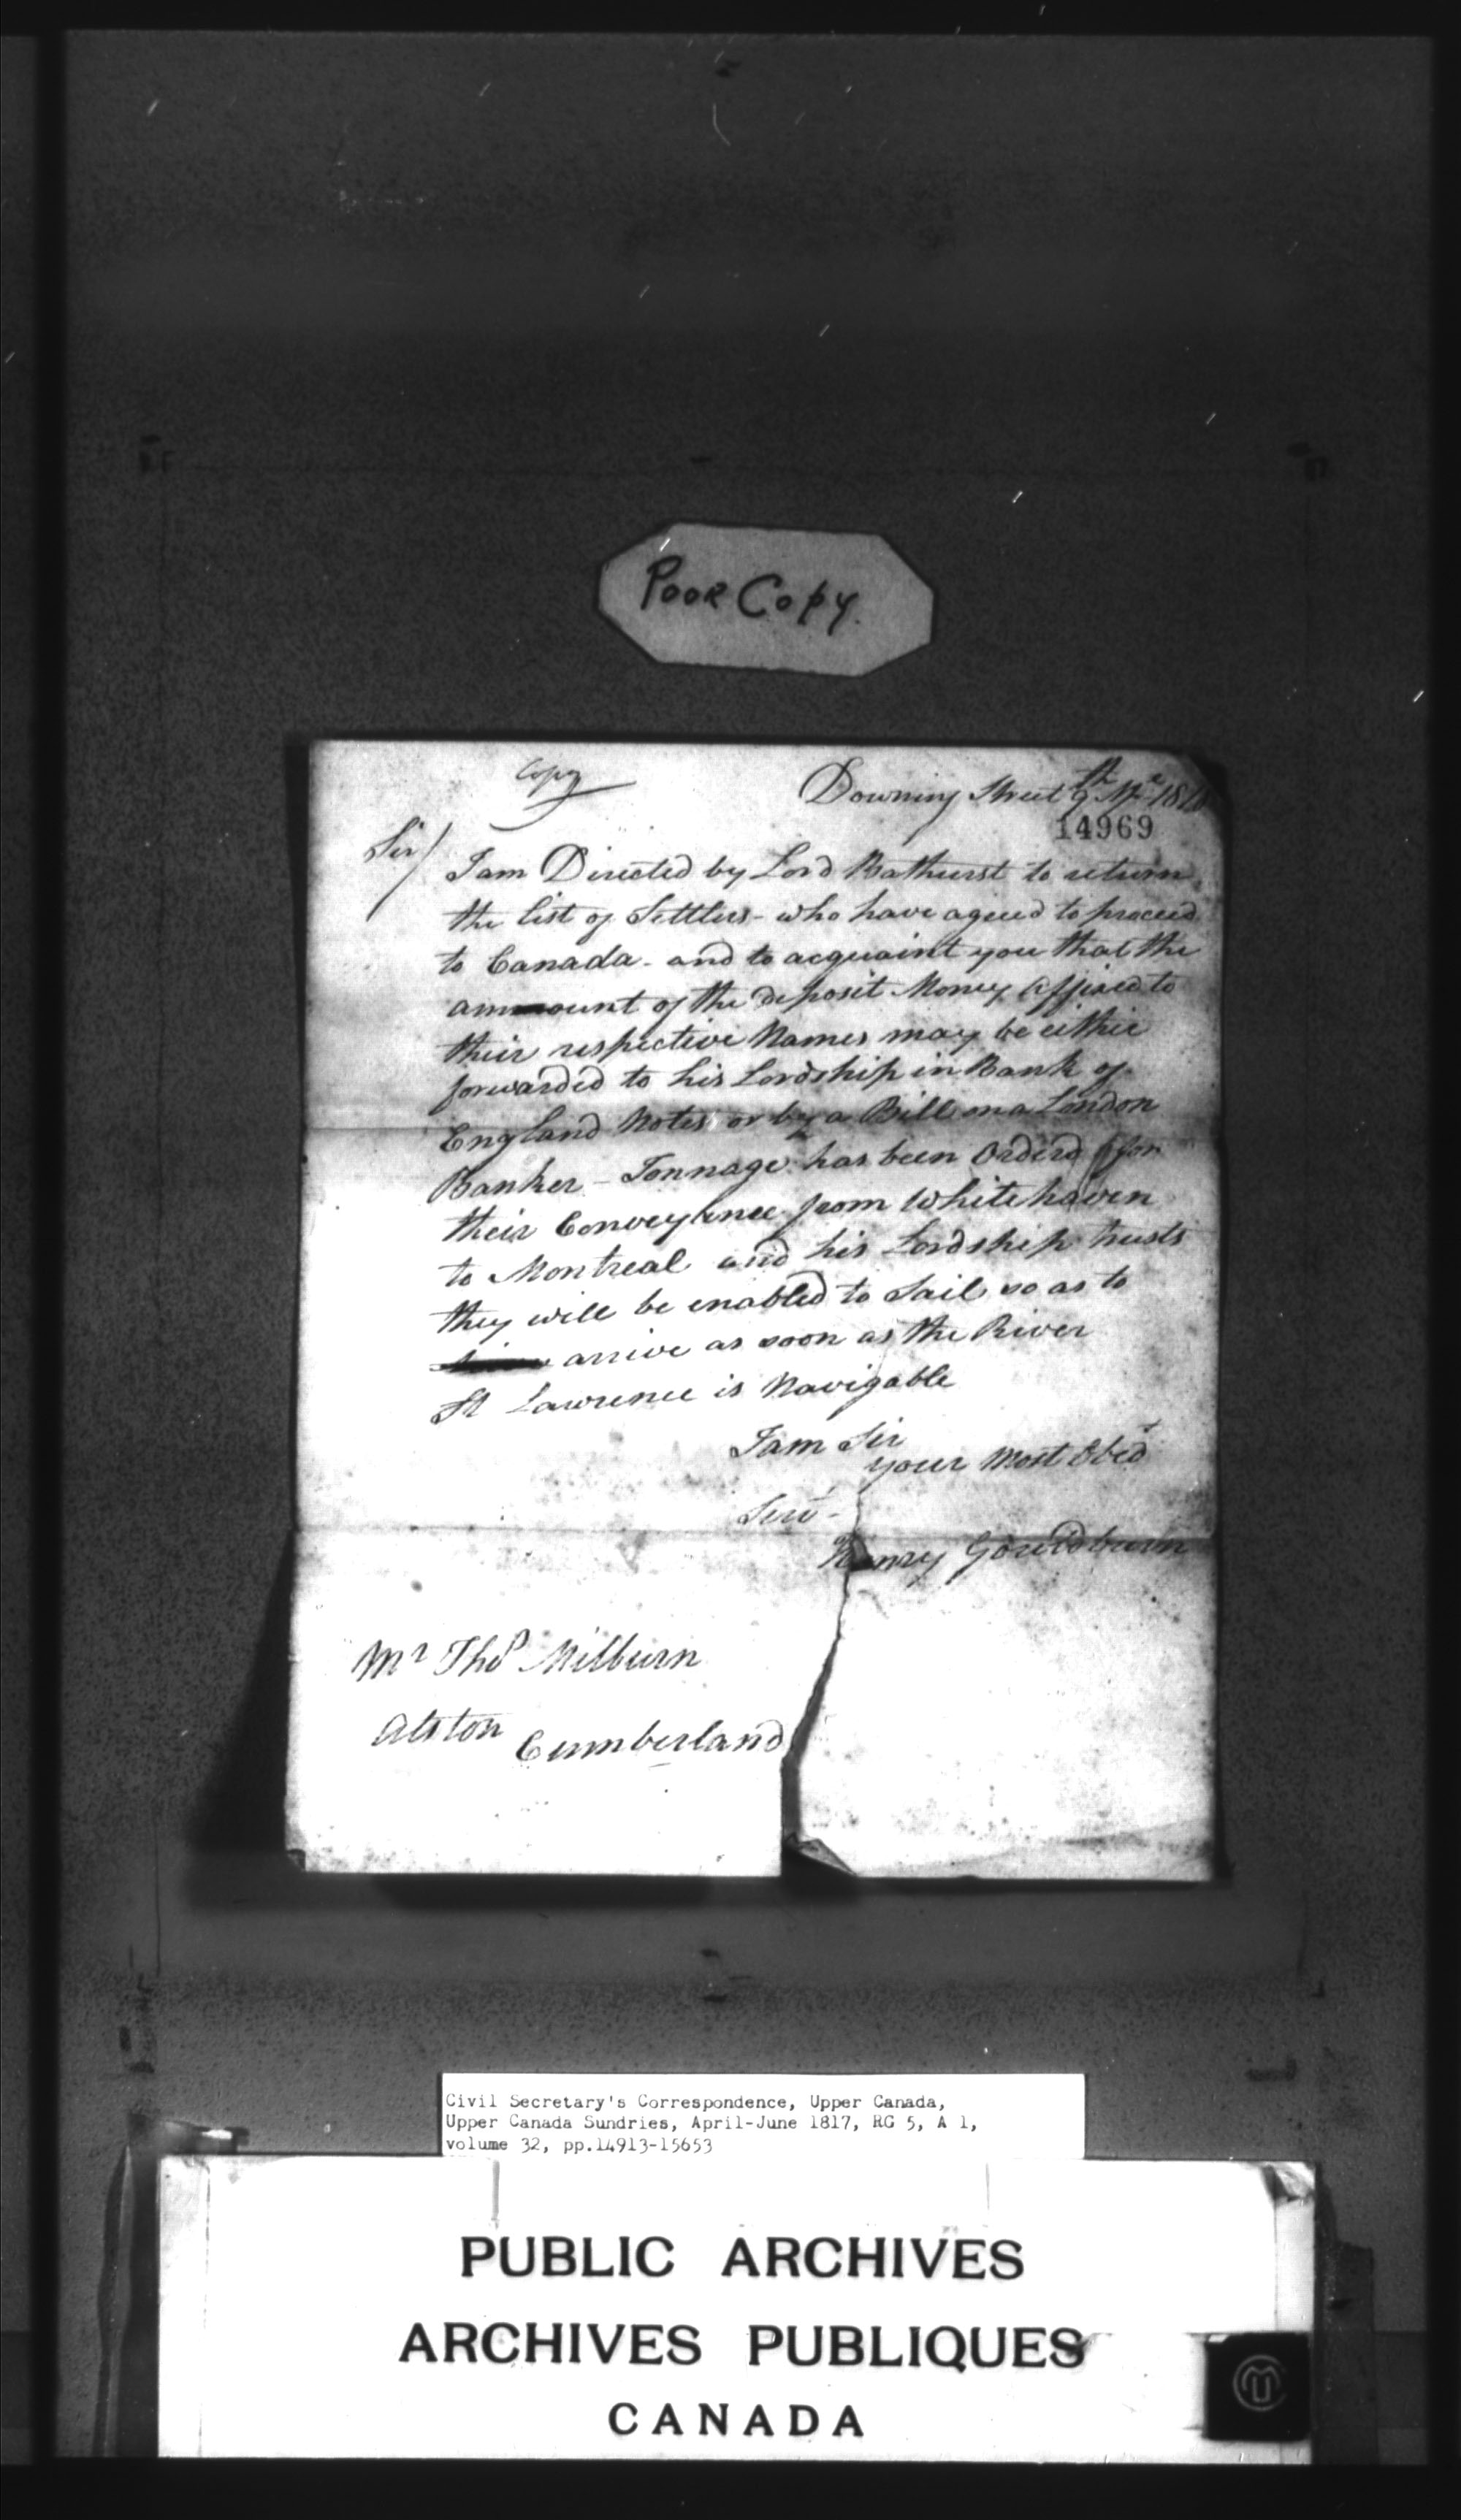 Poor Copy.
Copy
Downing Street 9th Mr 1818
14969
Sir/
I am Directed by Lord Bathurst to return
the list of Settlers - who have agreed to proceed
to Canada - and to acquaint you that the
ammount of the deposit Money affixed to
their respective Names may be either
forwarded to his Lordship in Bank of
England Notes or by a Bill on a London
Banker - Tonnage has been Orderd for
their Conveyance from Whitehaven
to Montreal and his Lordship trusts
they will be enabled to Sail so as to
arrive as soon as the River
St Lawrence is Navigable
I am Sir
your Most Obedt
Serv -
Henry Gouldburn
Mr Thos Milburn
Alston Cumberland
Civil Secretary's Correspondence, Upper Canada,
Upper Canada Sundries, April-June 1817, RG 5, A 1,
volume 32, pp.14913-15653
PUBLIC ARCHIVES
ARCHIVES PUBLIQUES
CANADA